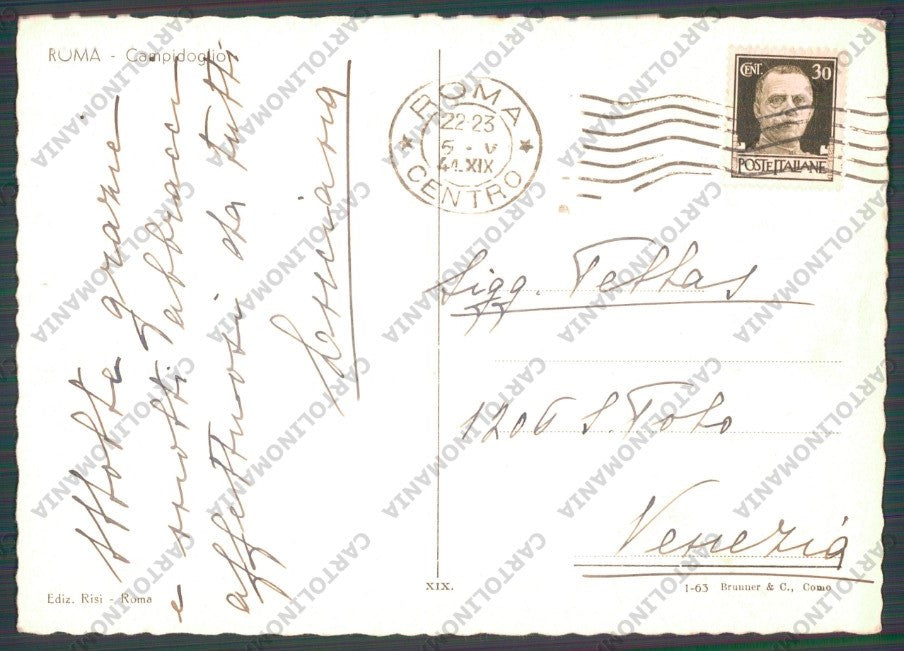 ROMA - Campidoglio
Molte grazie
e molti abbracci
affettuosi da tutti
Luciana
Ediz. Risi - Roma
XIX.
ROMA
22-23
5 - V
41.XIX
CENTRO
CENT. 30
POSTE ITALIANE
Sigg. Tettas
1206 S. Polo
Venezia
1-63 Brunner & C., Como
CARTOLINOMANIA